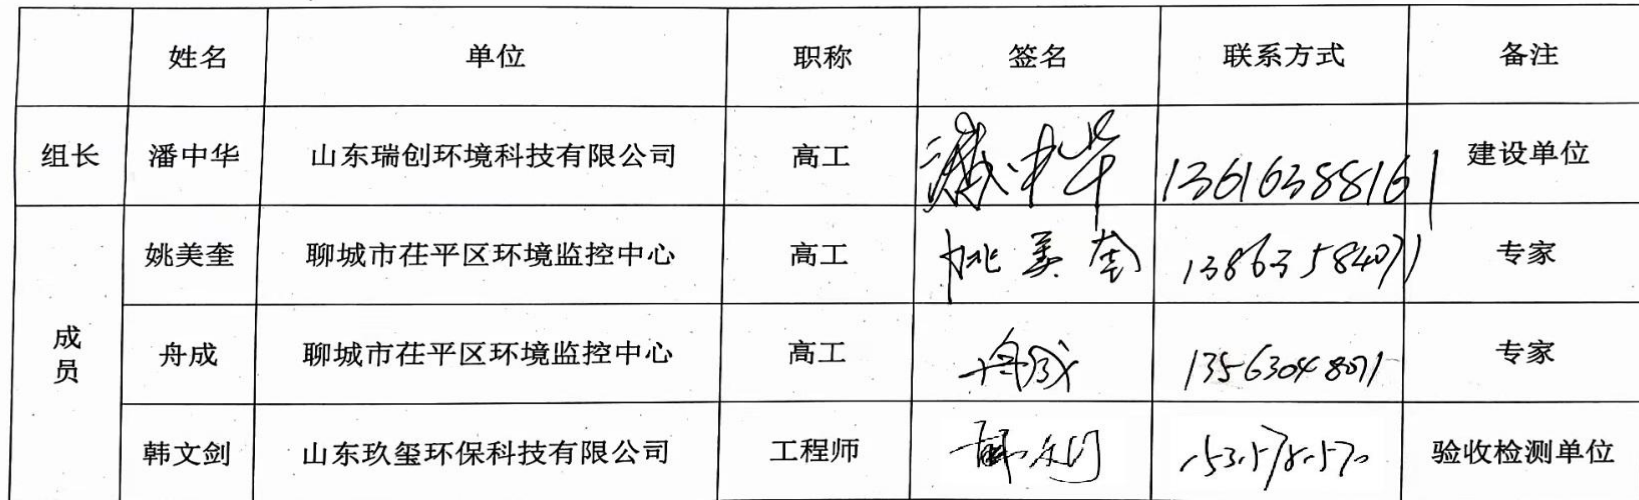 姓名 单位 职称 签名 联系方式 备注
组长 潘中华 山东瑞创环境科技有限公司 高工 潘中华 13616388161 建设单位
姚美奎 聊城市茌平区环境监控中心 高工 姚美奎 13863584071 专家
成员 舟成 聊城市茌平区环境监控中心 高工 舟成 13563048071 专家
韩文剑 山东玖玺环保科技有限公司 工程师 验收检测单位